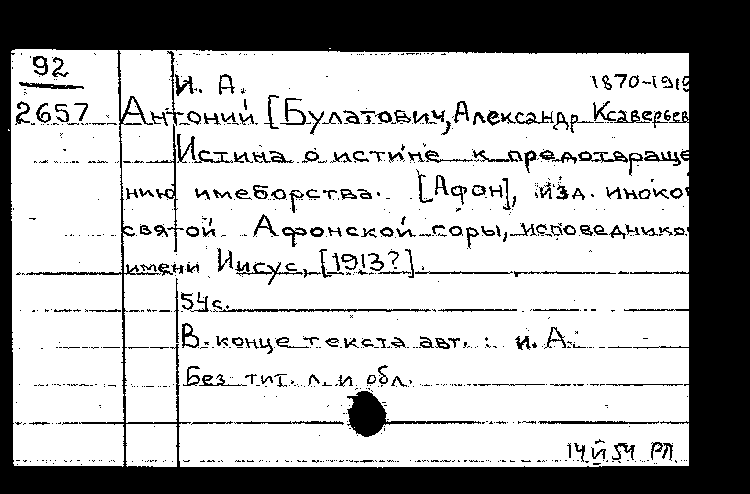 92
И. А. 1870-1919
2657 Антоний [Булатович, Александр Ксаверьев
Истина о истине к предотвраще
нию имеборства. [Афон], изд. иноков
святой Афонской горы, исповеднико
имени Иисус, [1913?].
54с.
В конце текста авт.: и. А.
Без тит. л. и обл.
14й54 РЛ